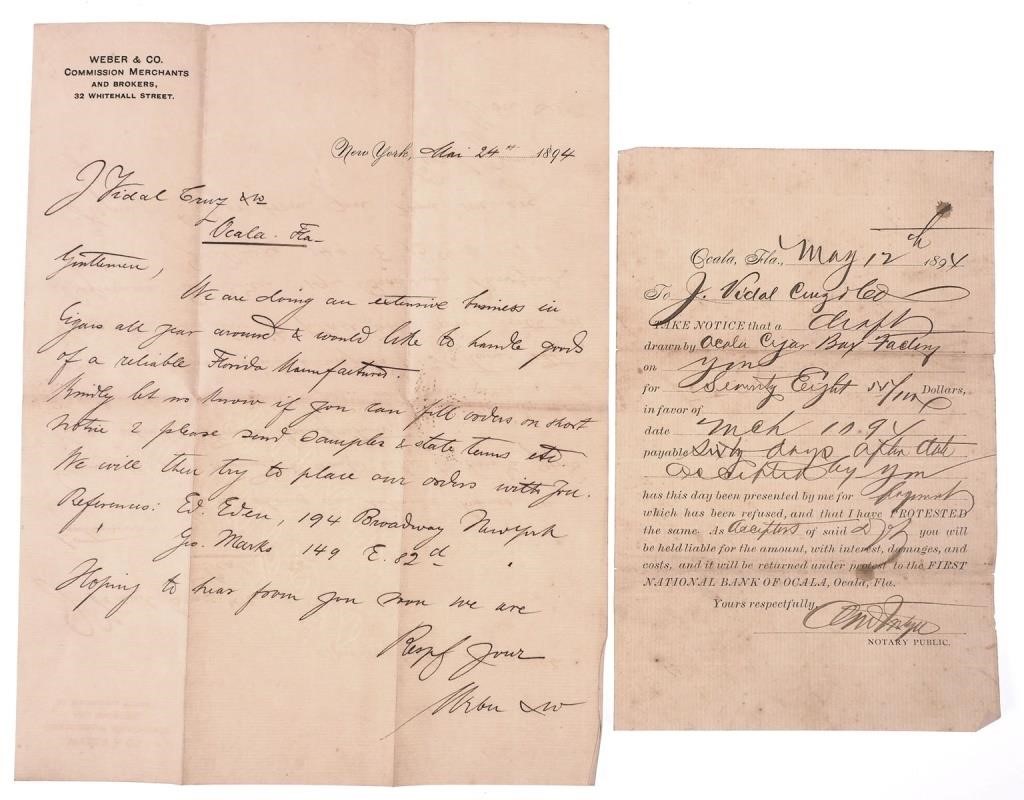 WEBER & CO.
COMMISSION MERCHANTS
AND BROKERS,
32 WHITEHALL STREET.
New York, Mai 24th 1894
J Vidal Cruz & Co
Ocala. Fla-
Gentlemen,
We are doing an extensive business in
Cigars all year around & would like to handle goods
of a reliable Florida Manufacturer.
Kindly let us know if you can fill orders on short
notice & please send samples & state terms etc.
We will then try to place our orders with you.
References: Ed. Eden, 194 Broadway New York
Geo. Marks 149 E. 82d "
Hoping to hear from you soon we are
Respf your
Weber & Co
Ocala, Fla., May 12th 1894
To J. Vidal Cruz & Co
TAKE NOTICE that a draft
drawn by Ocala Cigar Box Factory
on you
for Seventy Eight Dollars,
in favor of
date Mch
payable Sixty days after date
accepted by you
has this day been presented by me for payment
which has been refused, and that I have PROTESTED
the same. As Acceptors of said you will
be held liable for the amount, with interest, damages, and
costs, and it will be returned under protest to the FIRST
NATIONAL BANK OF OCALA, Ocala, Fla.
Yours respectfully,
NOTARY PUBLIC.